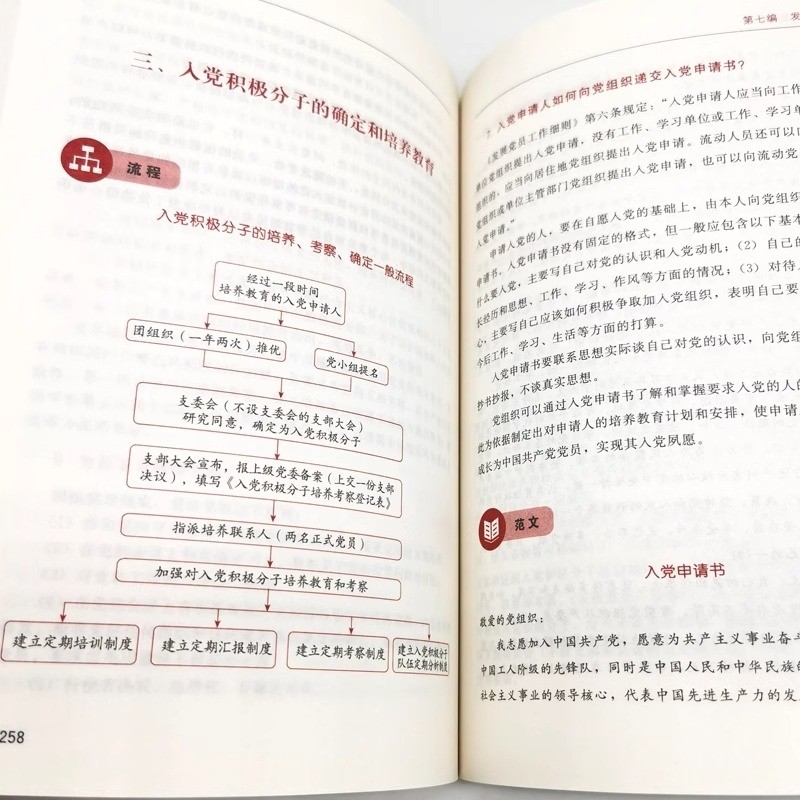 三、入党积极分子的确定和培养教育
流程
入党积极分子的培养、考察、确定一般流程
经过一段时间
培养教育的入党申请人
团组织（一年两次）推优
党小组提名
支委会（不设支委会的支部大会）
研究同意，确定为入党积极分子
支部大会宣布，报上级党委备案（上交一份支部
决议），填写《入党积极分子培养考察登记表》
指派培养联系人（两名正式党员）
加强对入党积极分子培养教育和考察
建立定期培训制度
建立定期汇报制度
建立定期考察制度
建立入党积极分子
队伍定期分析制度
258
第七编 发
7. 入党申请人如何向党组织递交入党申请书？
《发展党员工作细则》第六条规定：“入党申请人应当向工作
单位党组织提出入党申请，没有工作、学习单位或工作、学习单
组织的，应当向居住地党组织提出入党申请。流动人员还可以
党组织或单位主管部门党组织提出入党申请，也可以向流动党
入党申请。”
申请入党的人，要在自愿入党的基础上，由本人向党组织
申请书。入党申请书没有固定的格式，但一般应包含以下基本
什么要入党，主要写自己对党的认识和入党动机；（2）自己的
长经历和思想、工作、学习、作风等方面的情况；（3）对待入
心，主要写自己应该如何积极争取加入党组织，表明自己要
今后工作、学习、生活等方面的打算。
入党申请书要联系思想实际谈自己对党的认识，向党组
抄书抄报，不谈真实思想。
党组织可以通过入党申请书了解和掌握要求入党的人的
此为依据制定出对申请人的培养教育计划和安排，使申请
成长为中国共产党党员，实现其入党夙愿。
范文
入党申请书
敬爱的党组织：
我志愿加入中国共产党，愿意为共产主义事业奋斗
中国工人阶级的先锋队，同时是中国人民和中华民族的
社会主义事业的领导核心，代表中国先进生产力的发